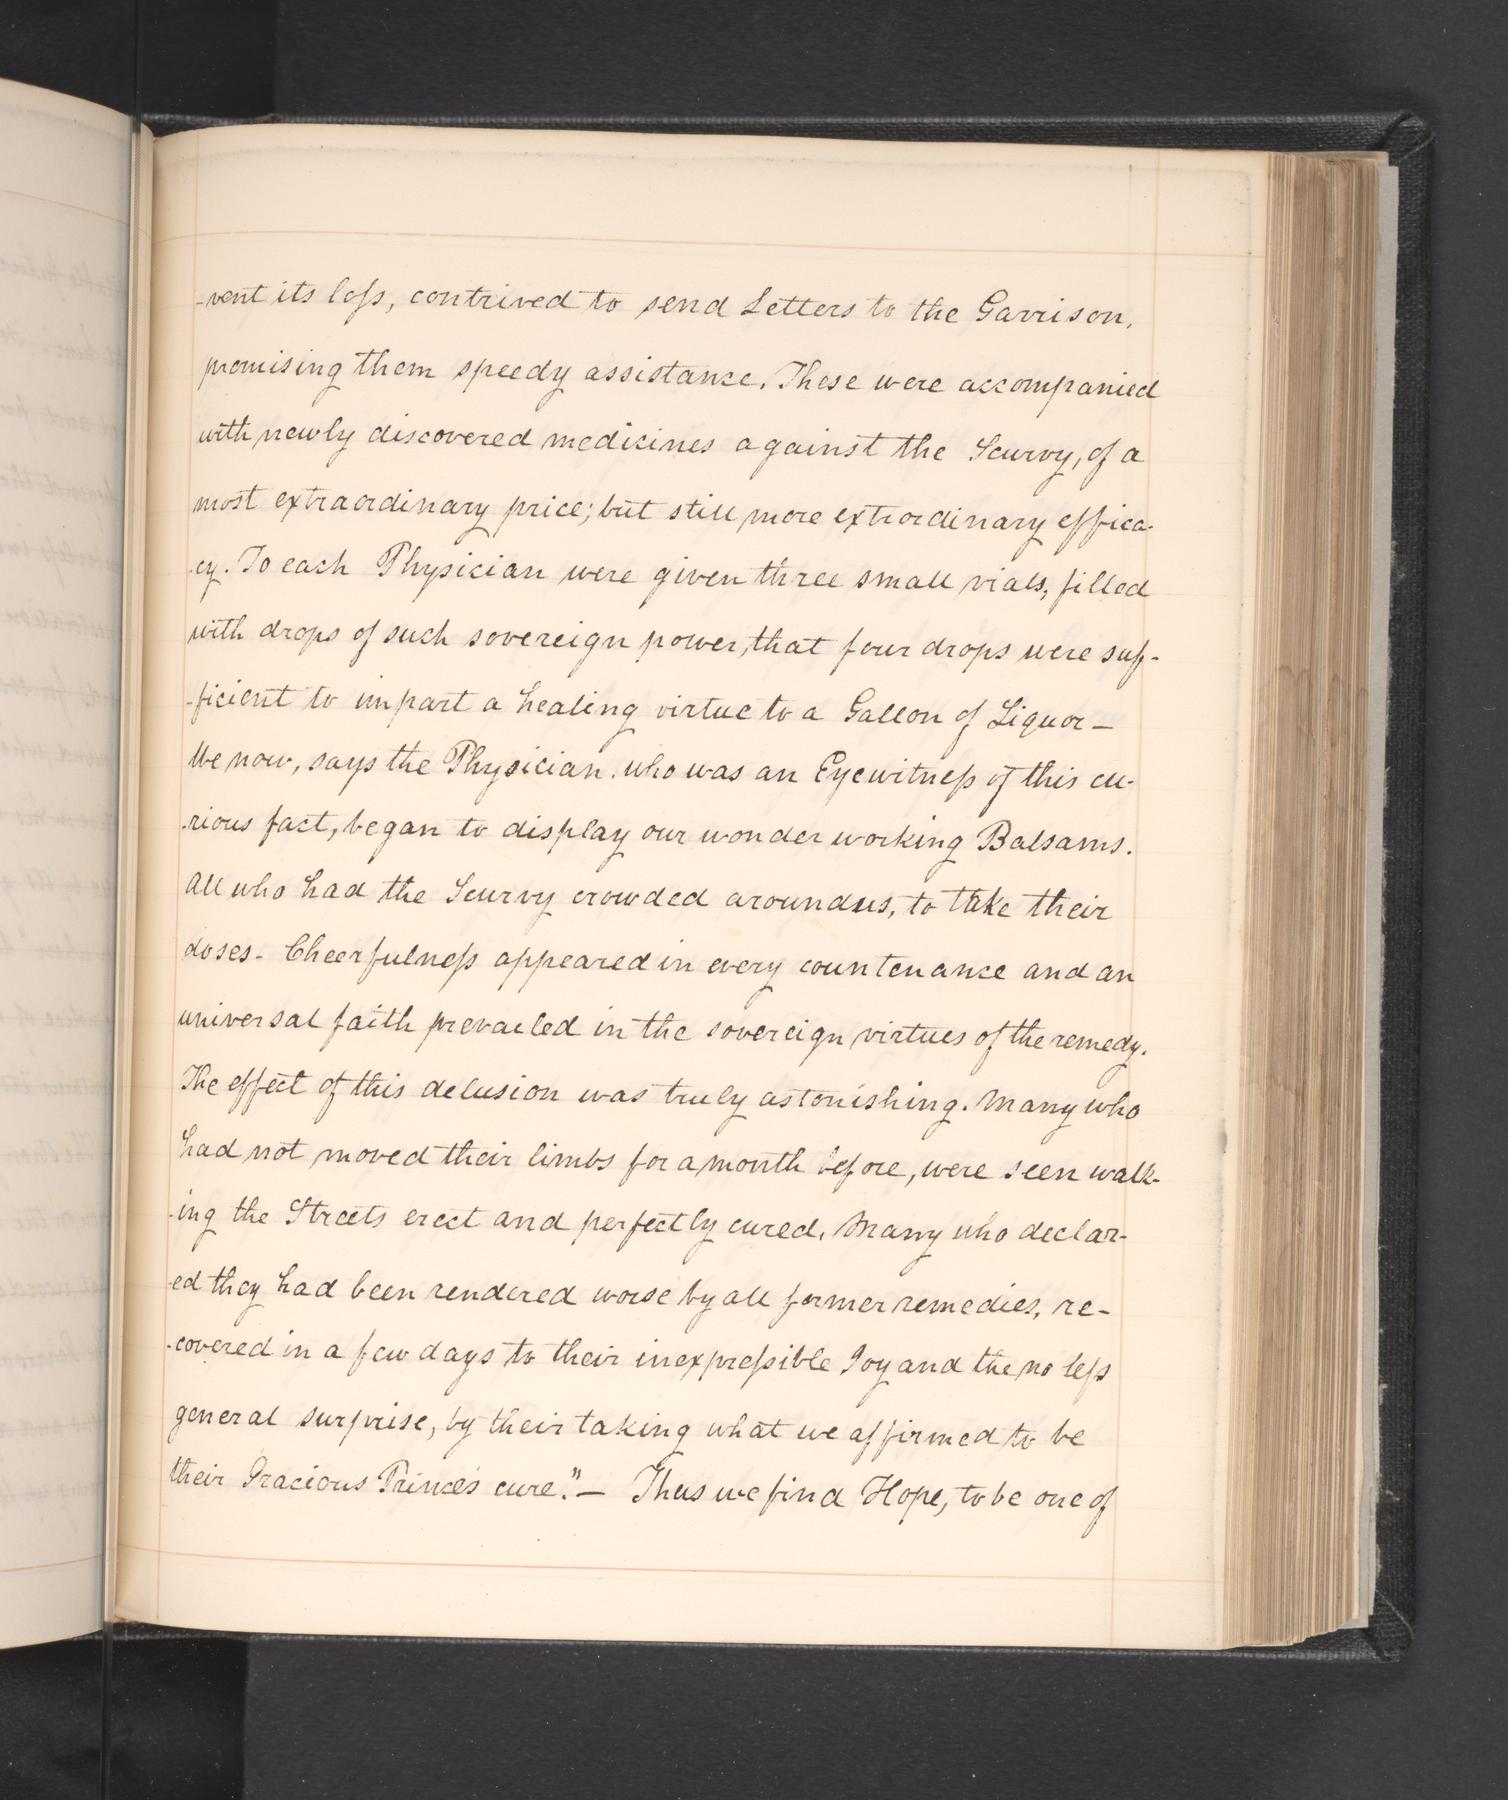 -vent its loſs, contrived to send Letters to the Garrison,
promising them speedy assistance. These were accompanied
with newly discovered medicines against the Scurvy, of a
most extraordinary price; but still more extrordinary effica-
-cy. To each Physician were given three small vials, filled
with drops of such sovereign power, that four drops were suf-
-ficient to impart a healing virtue to a Gallon of Liquor —
We now, says the Physician, who was an Eyewitneſs of this cu-
-rious fact, began to display our wonder working Balsams.
All who had the Scurvy crowded around us, to take their
doses - Cheerfulneſs appeared in every countenance and an
universal faith prevailed in the sovereign virtues of the remedy.
The effect of this delusion was truly astonishing. Many who
had not moved their limbs for a month before, were seen walk-
-ing the Streets erect and perfectly cured, Many who declar-
-ed they had been rendered worse by all former remedies, re-
-covered in a few days to their inexpreſsible Joy and the no leſs
general surprise, by their taking what we affirmed to be
their Gracious Prince's cure." — Thus we find Hope, to be one of